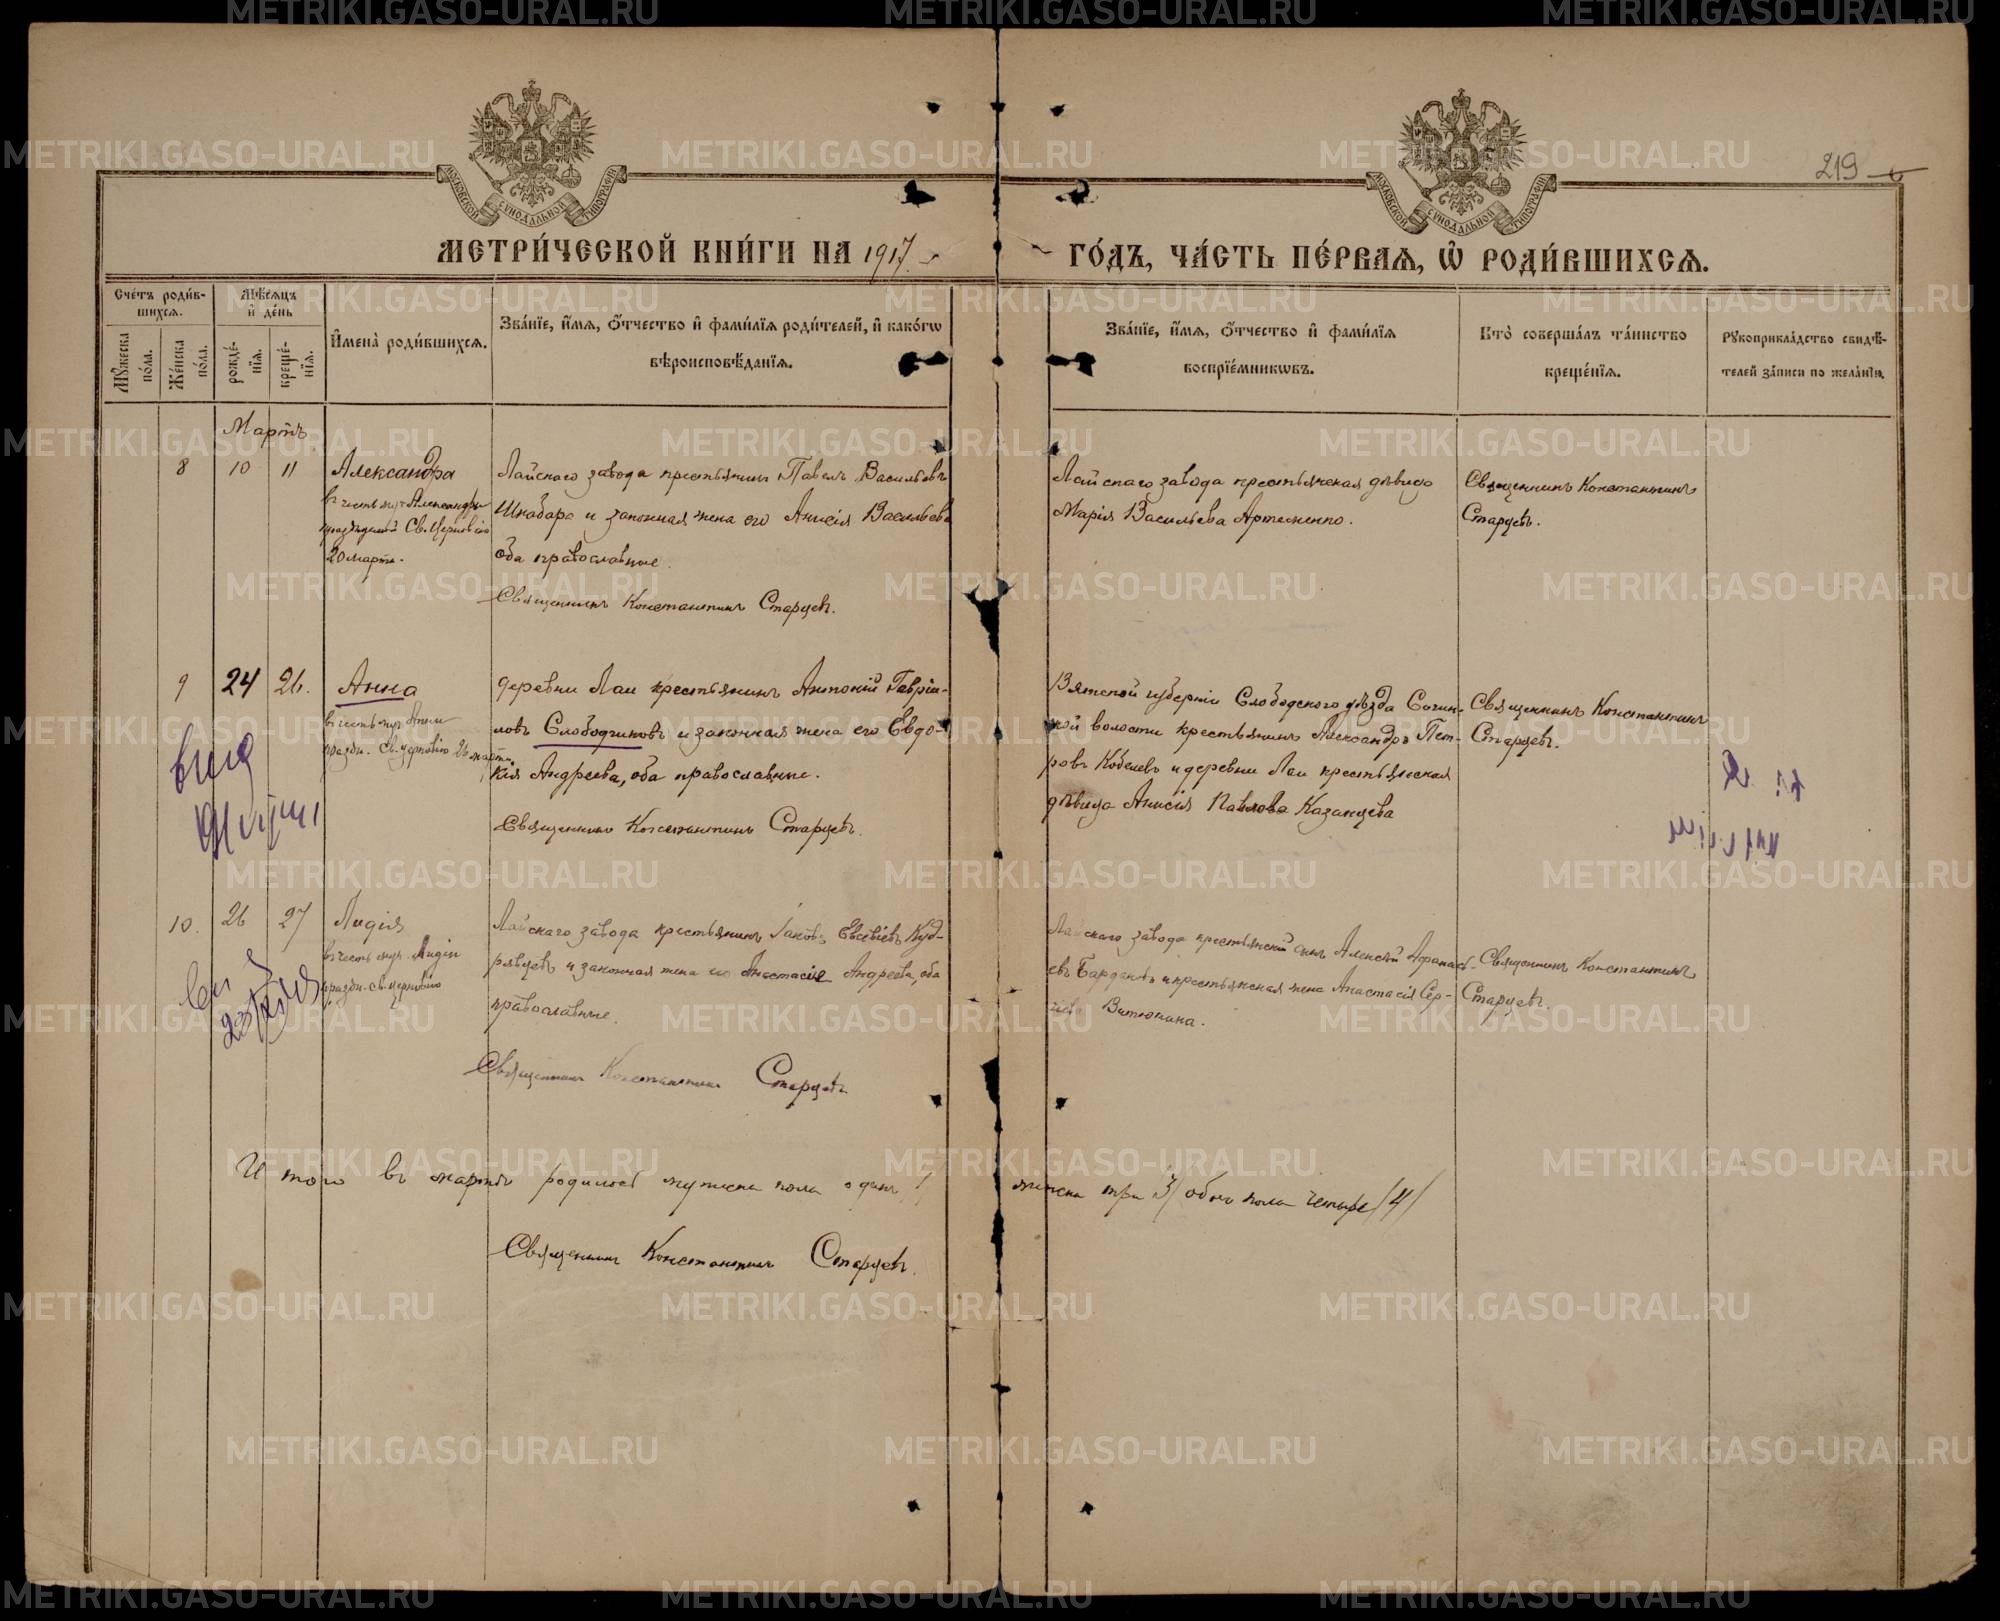 219
МОСКОВСКОЙ СѴНОДАЛЬНОЙ ТИПОГРАФІИ
МОСКОВСКОЙ СѴНОДАЛЬНОЙ ТИПОГРАФІИ
МЕТРИ́ЧЕСКОЙ КНИ́ГИ НА 1917 ГО́ДЪ, ЧА́СТЬ ПЕ́РВАѦ, Ѡ҆ РОДИ́ВШИХСѦ.
Сче́тъ роди́в-
шихсѧ.
Мꙋ́жеска по́ла.
Же́нска по́ла.
Мѣ́сѧцъ
и҆ де́нь
рожде́-
нїѧ.
креще́-
нїѧ.
И҆мена̀ роди́вшихсѧ.
Зва́нїе, и҆́мѧ, ѻ҆́тчество и҆ фами́лїѧ роди́телей, и҆ како́гѡ
вѣроисповѣ́данїѧ.
Зва́нїе, и҆́мѧ, ѻ҆́тчество и҆ фами́лїѧ
воспрїе́мникѡвъ.
Кто̀ соверша́лъ та́инство
креще́нїѧ.
Рꙋкоприкла́дство свидѣ́-
телей за́писи по жела́нїю.
Мартъ
8 10 11 Александра
въ честь муч. Александры
празднуемой Св. Церковію
20 марта.
Лайскаго завода крестьянинъ Павелъ Васильевъ
Шкабара и законная жена его Анисія Васильева
оба православные.
Священникъ Константинъ Старцевъ.
Лайскаго завода крестьянская дѣвица
Марія Васильева Артеменко.
Священникъ Константинъ
Старцевъ.
9 24 26. Анна
въ честь муч. Анны
праздн. Св. Церковію 26 марта.
деревни Лаи крестьянинъ Антоній Гаврі-
ловъ Слободчиковъ и законная жена его Евдо-
кія Андреева, оба православные.
Священникъ Константинъ Старцевъ.
Вятской губерніи Слободского уѣзда
кой волости крестьянинъ Александръ Пет-
ровъ Кобелевъ и деревни Лаи крестьянская
дѣвица Анисія Павлова Казанцева
Священникъ Константинъ
Старцевъ.
10. 26 27 Лидія
въ честь муч. Лидіи
праздн. св. церковію
Лайскаго завода крестьянинъ Іаковъ Евсевіевъ Куд-
рявцевъ и законная жена его Анастасія Андреева, оба
православные.
Священникъ Константинъ Старцевъ.
Лайскаго завода крестьянскій сынъ Алексѣй Афанась-
евъ и крестьянская жена Анастасія Сер-
гіева Витюнина.
Священникъ Константинъ
Старцевъ.
Итого въ мартѣ родилось мужеска пола одинъ /1/ женска три /3/ обоего пола четыре /4/
Священникъ Константинъ Старцевъ.
METRIKI.GASO-URAL.RU